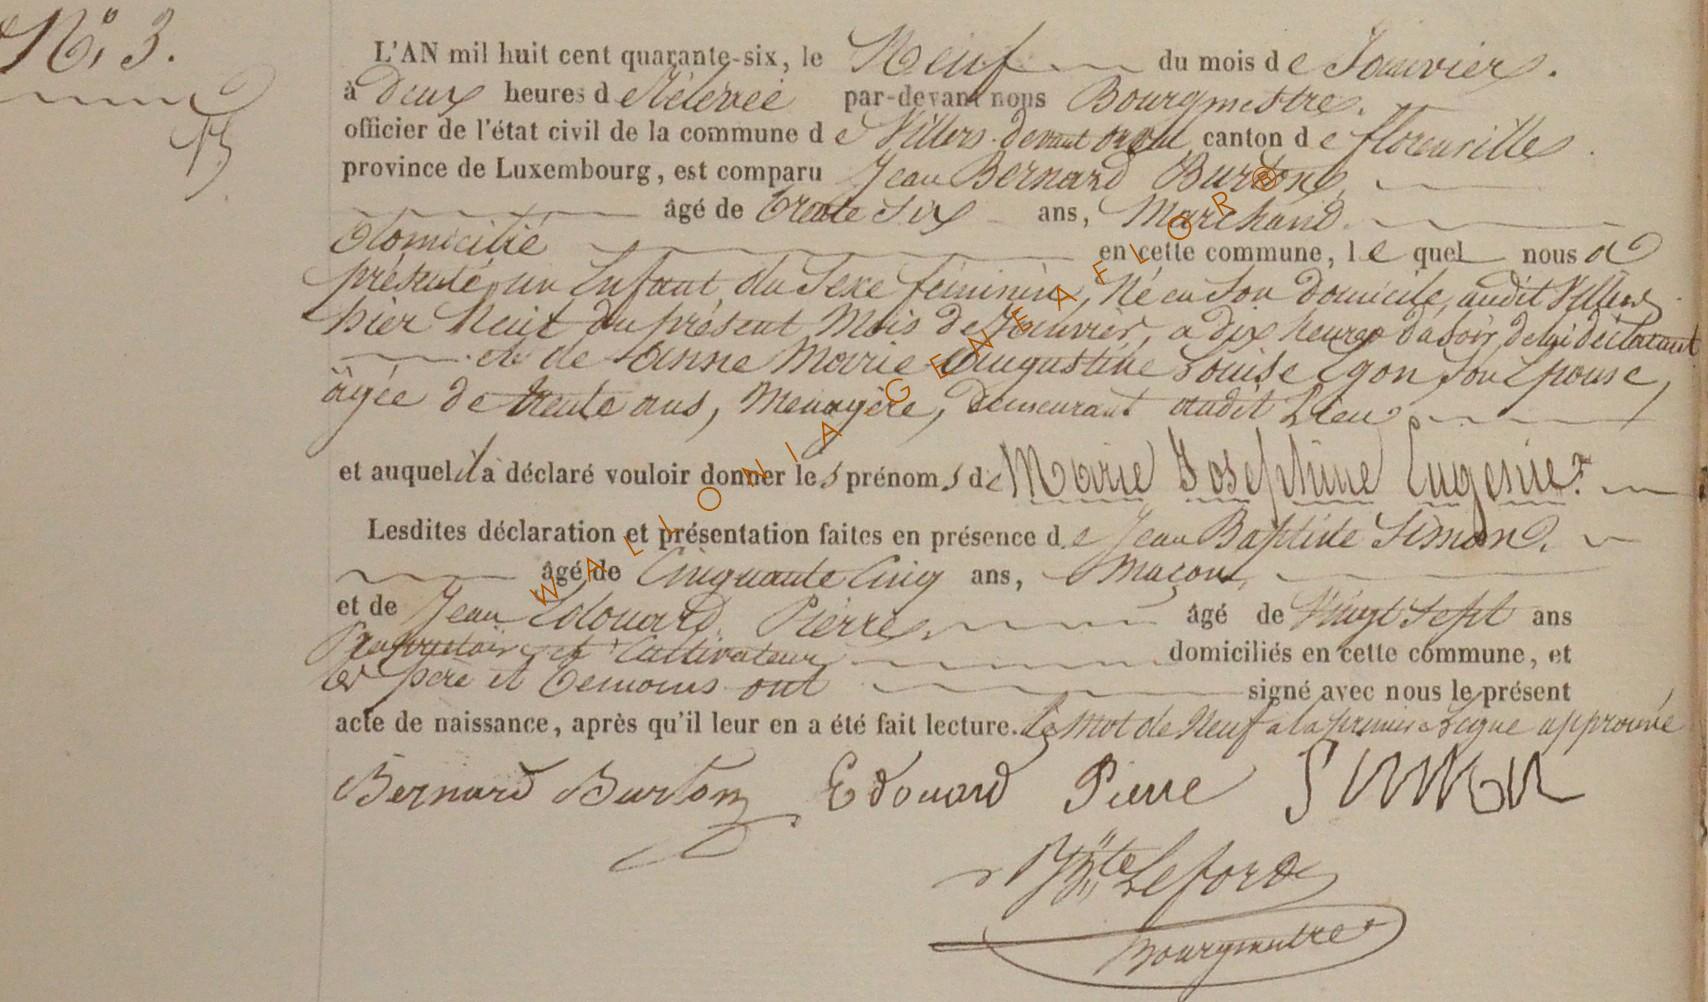 N° 3.
L'AN mil huit cent quarante-six, le Neuf du mois de Janvier.
à deux heures de Rélévée par-devant nous Bourgmestre.
officier de l'état civil de la commune de Villers devant orval canton de florenville
province de Luxembourg, est comparu Jean Bernard Burton,
âgé de trente six ans, Marchand.
domicilié en cette commune, lequel nous a
présenté un Enfant du Sexe féminin, Né en son domicile, audit Villers
hier huit du présent Mois de Janvier, a dix heures du soir, de lui déclarant
et de Anne Marie Augustine Louise Igon, son Epouse,
âgée de trente ans, Menagère, demeurant audit Lieu.
et auquel il a déclaré vouloir donner les prénoms de Marie Josephine Eugenie.
Lesdites déclaration et présentation faites en présence de Jean Baptiste Simon.
âgé de Cinquante Cinq ans, Maçon,
et de Jean Edouard Pierre, âgé de Vingt sept ans
Propriétaire et Cultivateur domiciliés en cette commune, et
les père et témoins ont signé avec nous le présent
acte de naissance, après qu'il leur en a été fait lecture. Le Mot de Neuf a la premiere Ligne approuvé
Bernard Burton Edouard Pierre Simon
Leforde
Bourgmestre
WALLONIA GENEAFLOR®